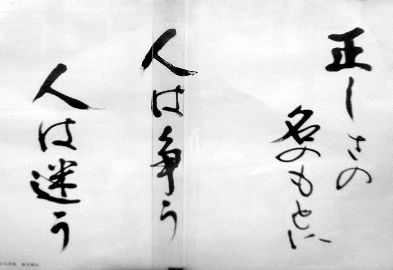 正しさの
名のもとに
人は争う
人は迷う